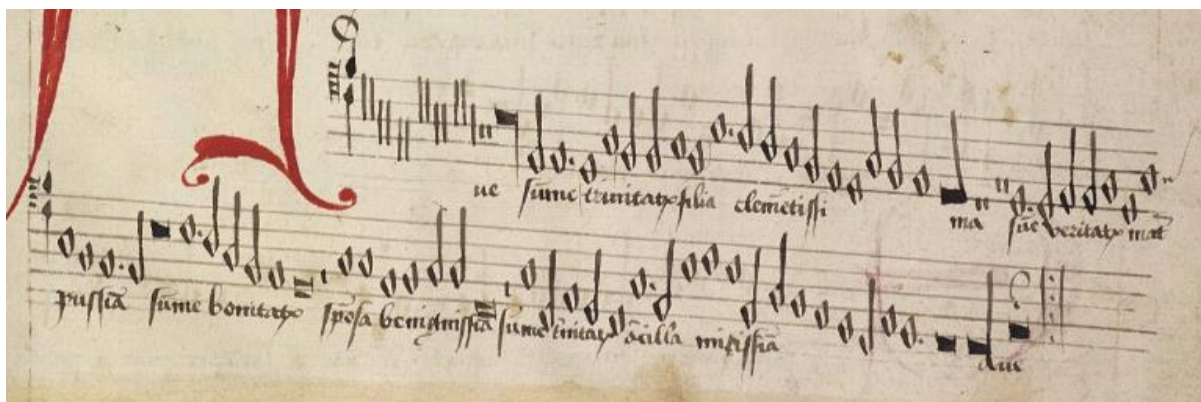 ue sūme trinitatꝭ filia clemētissi ma sūe veritatꝭ mat
pijssīa sūme bonitatꝭ spōsa benignissīa sūme tinitatꝭ ācilla mitissīa aue